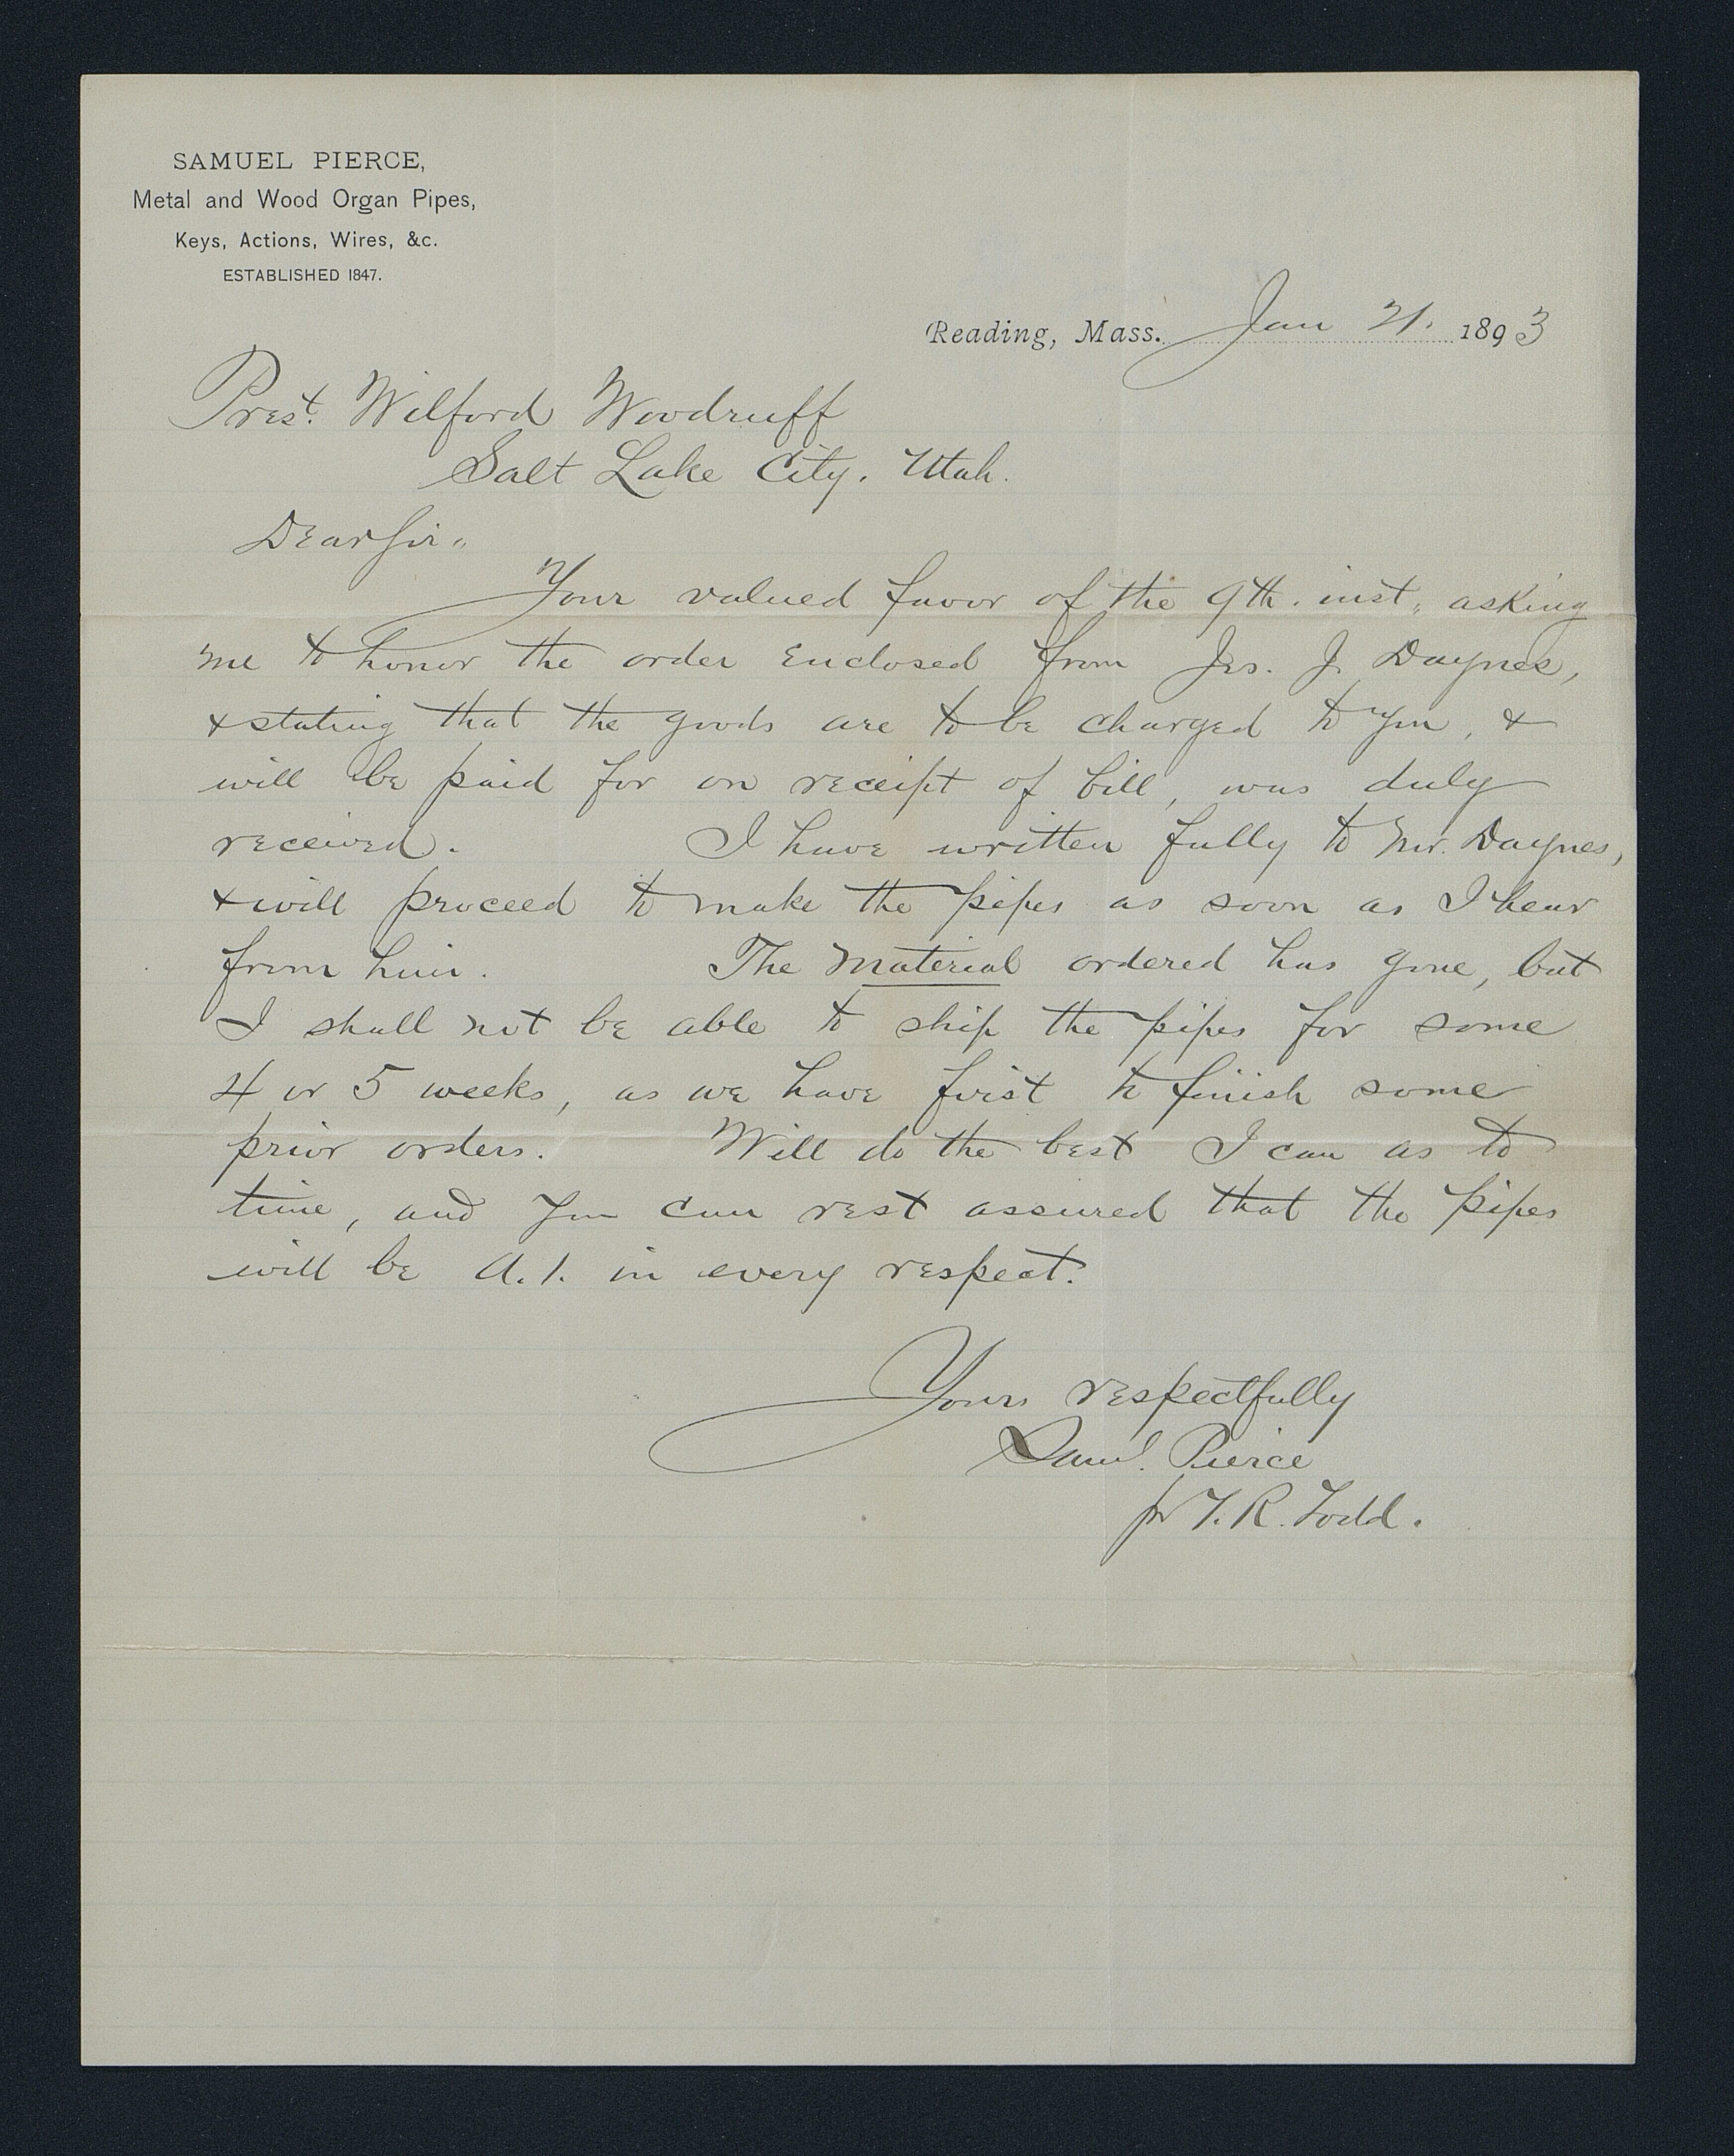 SAMUEL PIERCE,
Metal and Wood Organ Pipes,
Keys, Actions, Wires, &c.
ESTABLISHED 1847.
Reading, Mass. Jan 21. 1893
Prest. Wilford Woodruff
Salt Lake City. Utah.
Dear Sir "
Your valued favor of the 9th. inst, asking
me to honor the order enclosed from Jos. J. Daynes,
& stating that the goods are to be charged to you, &
will be paid for on receipt of bill, was duly
received. I have written fully to Mr. Daynes,
& will proceed to make the pipes as soon as I hear
from him. The material ordered has gone, but
I shall not be able to ship the pipes for some
4 or 5 weeks, as we have first to finish some
prior orders. Will do the best I can as to
time, and you can rest assured that the pipes
will be A.1. in every respect.
Yours respectfully
Saml. Pierce
pr T. R. Todd.